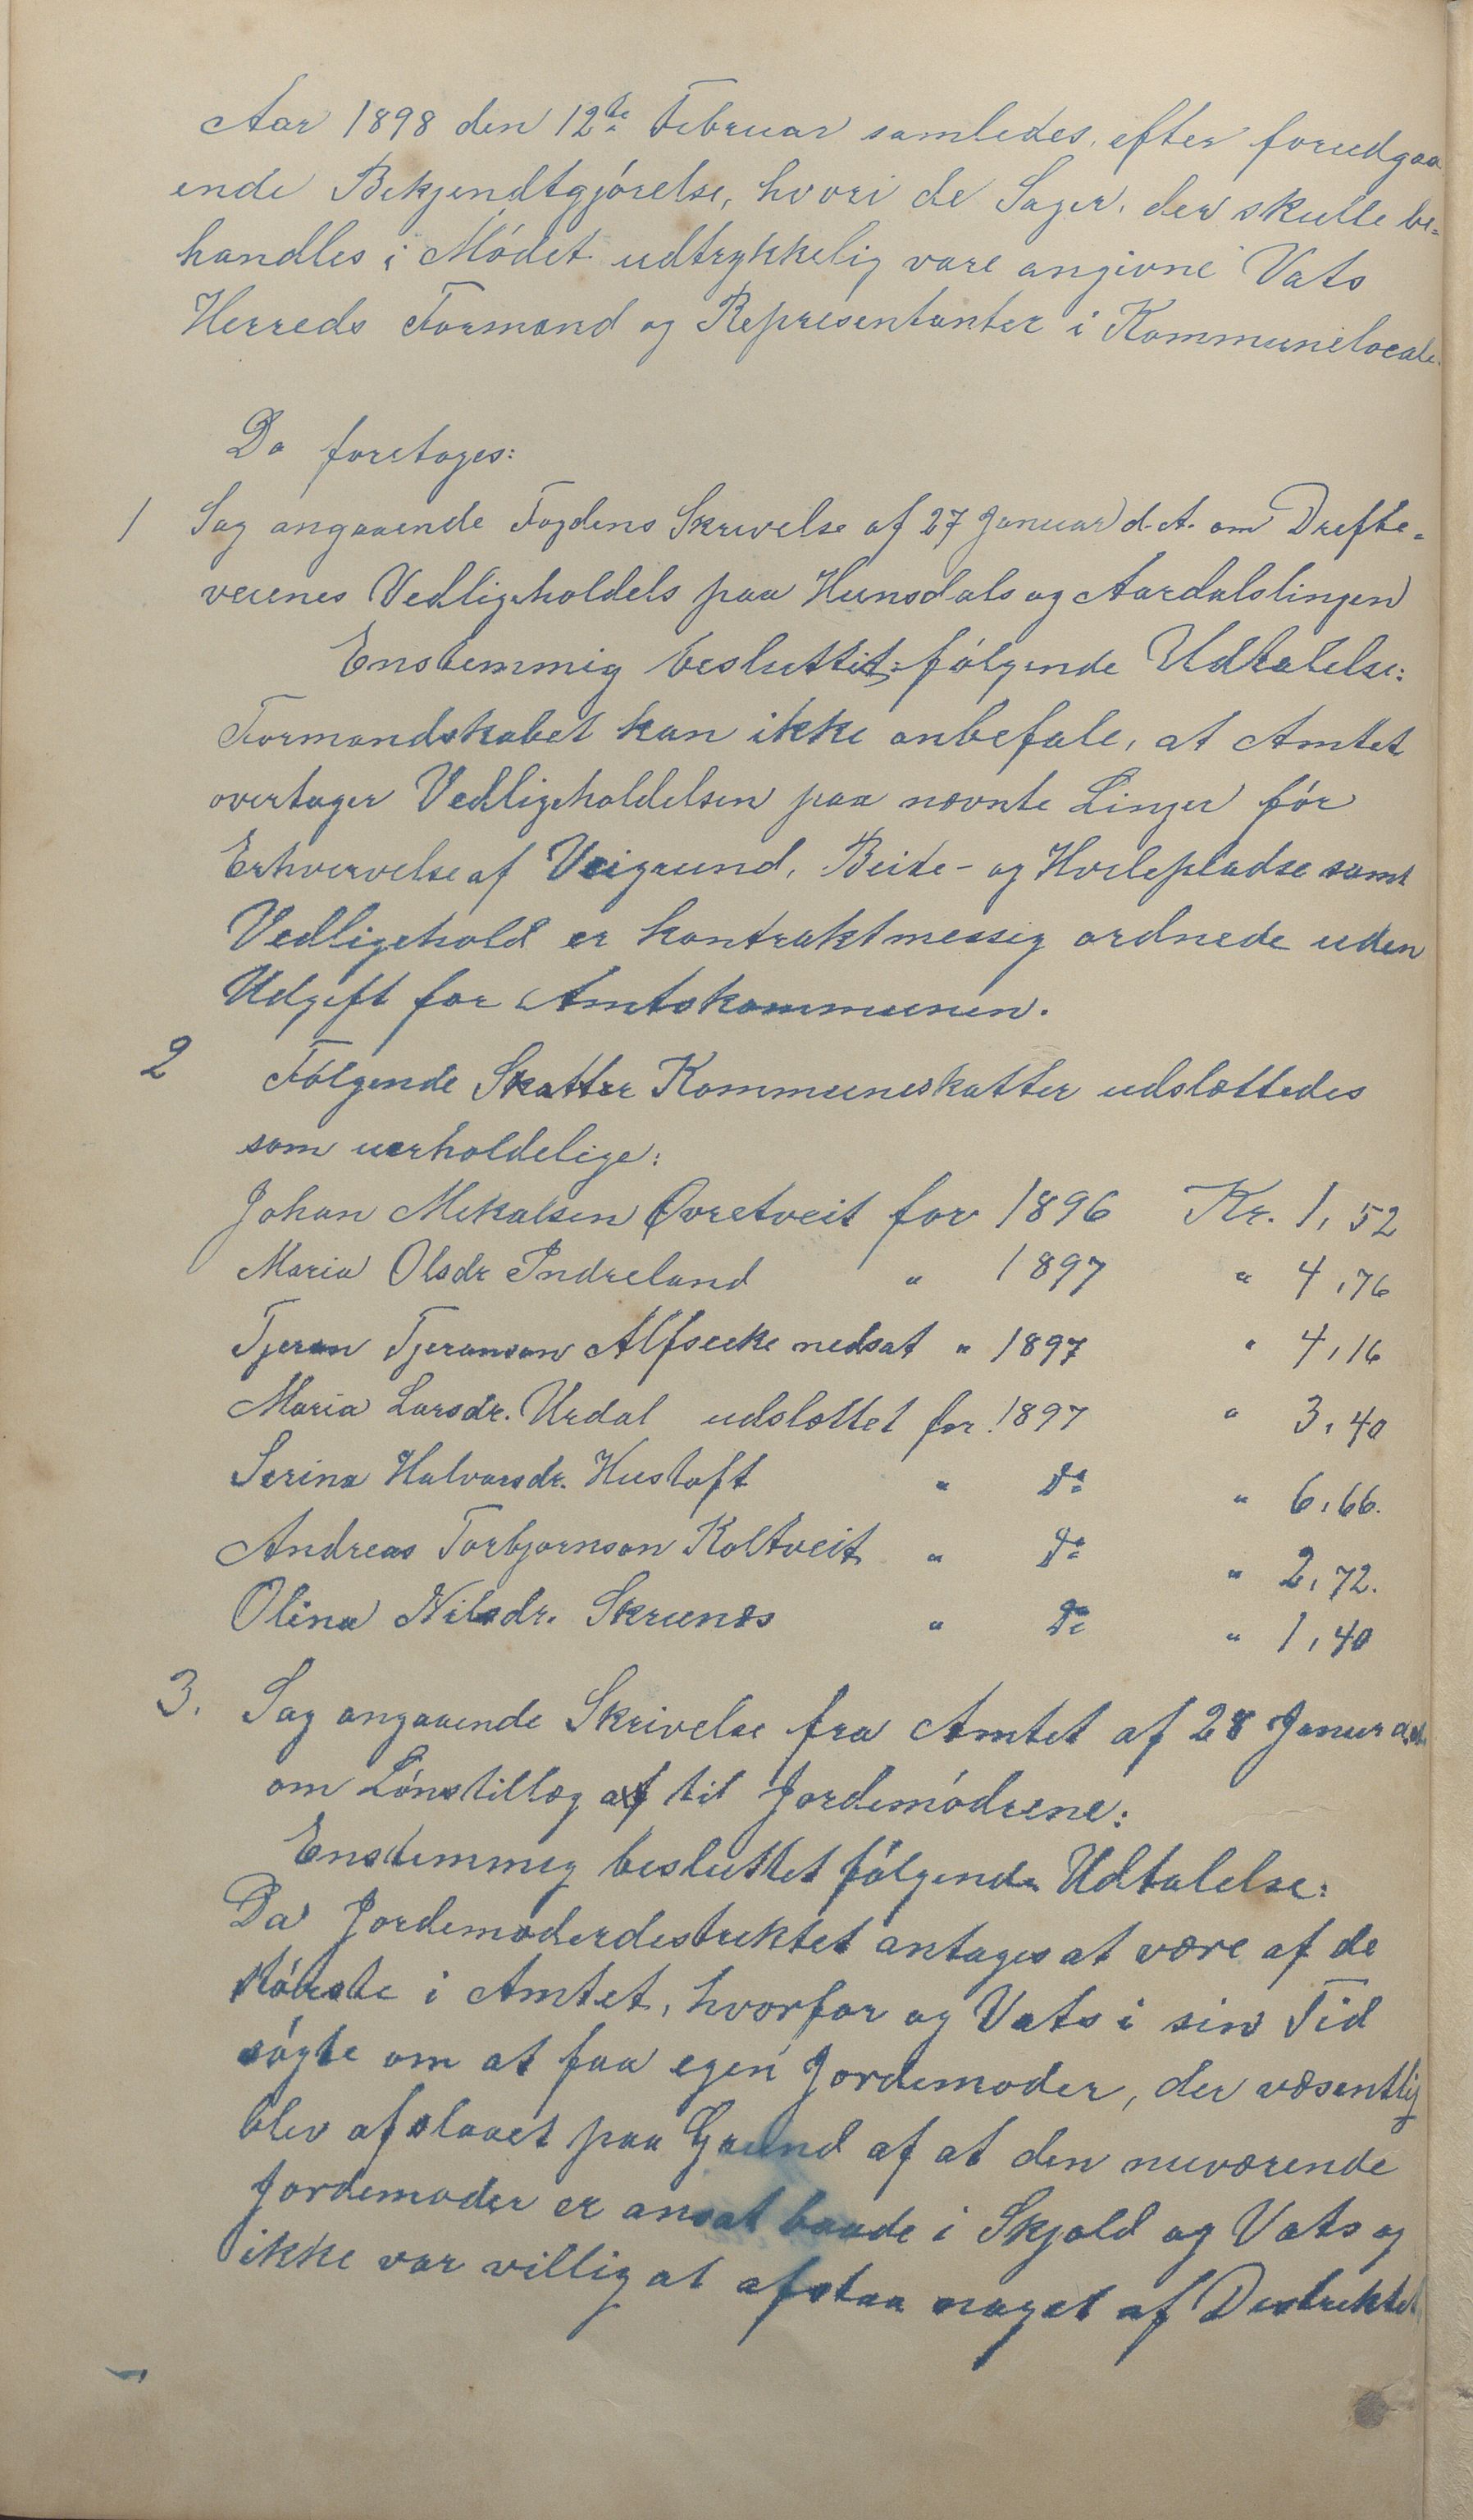 Aar 1898 den 12te Februar samledes, efter forudgaa
ende Bekjendtgjórelse, hvori de Sager, der skulle be=
handles i Módet udtrykkelig vare angivne Vats
Herreds Formænd og Representanter i Kommunelocale.
Da foretages:
1 Sag angaaende Fogdens Skrivelse af 27 Januar d. A. om Drifte=
veienes Vedligeholdels paa Hunsdals og Aardalslinjen
Enstemmig besluttet følgende Udtalelse:
Formandskabet kan ikke anbefale, at Amtet
overtager Vedligeholdelsen paa nævnte Linjer fór
Erhvervelse af Veigrund, Beite- og Hvilepladse samt
Vedligehold er kontraktmessig ordnede uden
Udgift for Amtskommunen.
2 Fólgende Skatter Kommuneskatter udslættedes
som uerholdelige:
Johan Mikalsen Øvretveit for 1896 Kr. 1,52
Maria Olsdr Indreland " 1897 " 4,76
Tjeran Tjeranson Alfseike nedsat " 1897 " 4,16
Maria Larsdr. Urdal udslættet for 1897 " 3,40
Serina Halvorsdr. Hustoft " Do " 6,66.
Andreas Torbjornson Koltveit " Do " 2,72.
Olina Nilsdr. Skrunes " Do " 1,40
3. Sag angaaende Skrivelse fra Amtet af 28 Januar d.A.
om Lónstillæg af til Jordemódrene:
Enstemmig besluttet fólgende Udtalelse:
Da Jordemoderdistriktet antages at være af de
stórste i Amtet, hvorfor og Vats i sin Tid
sógte om at faa egen Jordemoder, der væsentlig
blev afslaaet paa Grund af at den nuværende
Jordemoder er ansat baade i Skjold og Vats og
ikke var villig at afstaa noget af Distriktet